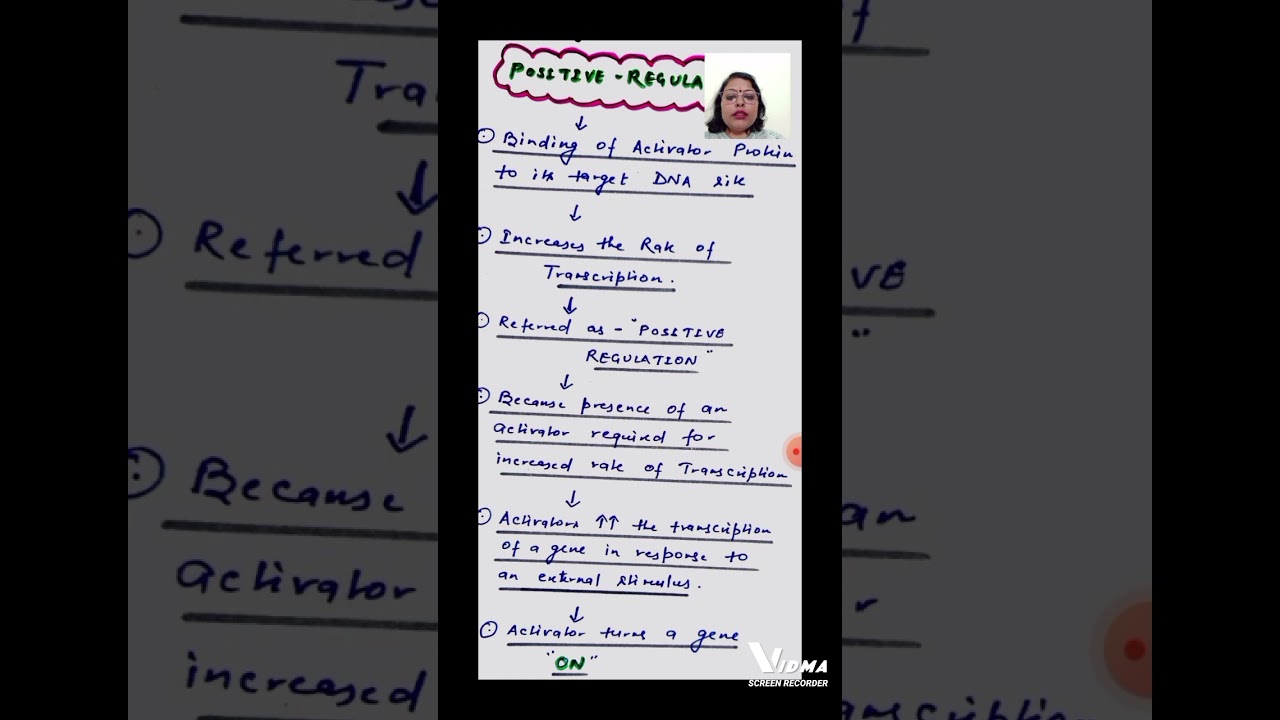 POSITIVE - REGULA
↓
Binding of Activator Protein
to its target DNA site
↓
Increases the Rate of
Transcription.
↓
Referred as - "POSITIVE
REGULATION"
↓
Because presence of an
activator required for
increased rate of Transcription
↓
Activators ↑↑ the transcription
of a gene in response to
an external stimulus.
↓
Activator turns a gene
"ON"
VIDMA
SCREEN RECORDER
Tra
↓
Referred
VE
"
↓
Because
an
activator
r
increased
anscription